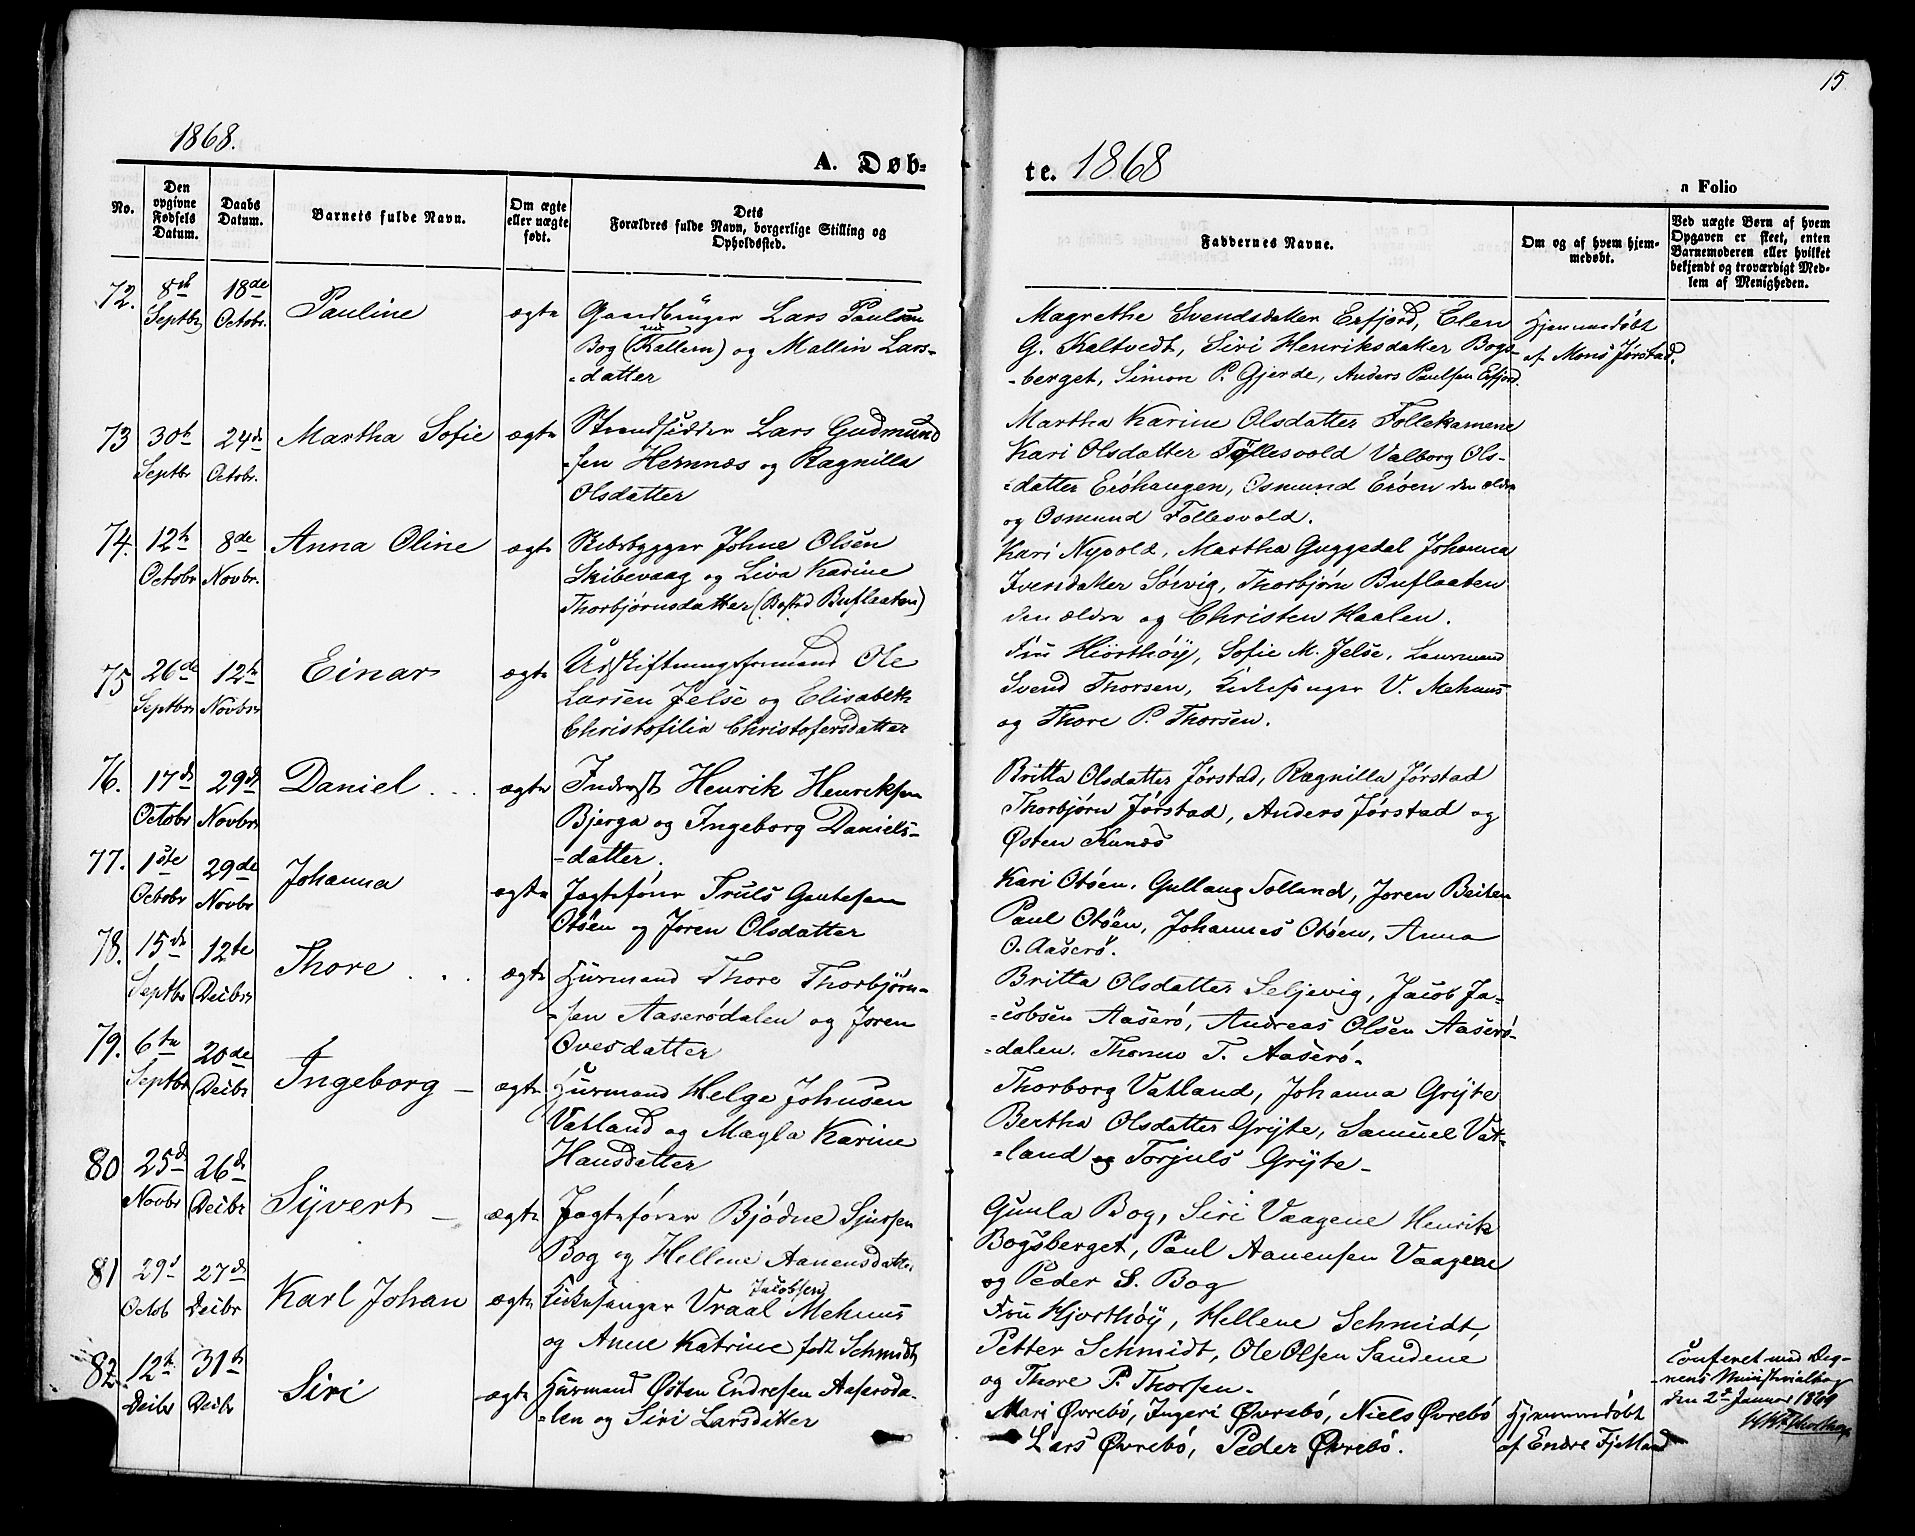 15
1868.
A. Døb-
te. 1868
n Folio
No.
Den opgivne Fødsels Datum.
Daabs Datum.
Barnets fulde Navn.
Om ægte eller uægte født.
Dets
Forældres fulde Navn, borgerlige Stilling og
Opholdssted.
Faddernes Navne.
Om og af hvem hjem-
medøbt.
Ved uægte Børn af hvem
Opgaven er skeet, enten
Barnemoderen eller hvilket
bekjendt og troværdigt Med-
lem af Menigheden.
72. 8de Septbr 18de Octobr. Pauline ægte
Gaardbruger Lars Paulsen
Bog (Kallern) og Mallin Lars-
-datter
Magrethe Svendsdatter Erfjord, Elen
G. Kaltvedt, Siri Henriksdatter Bogs-
-berget, Simon P. Gjerde, Anders Paulsen Erfjord.
Hjemmedøbt
af Mons Jørstad.
73 30te Septbr 24de Octobr. Martha Sofie ægte
Strandsidder Lars Gudmund
-sen Hernnæs og Ragnilla
Olsdatter
Martha Karine Olsdatter Follekamene
Kari Olsdatter Follesvold Valborg Ols-
-datter Eröhaugen, Osmund Eröen den ældre
og Osmund Follesvold.
74. 12te Octobr 8de Novbr. Anna Oline ægte
Skibsbygger Johne Olsen
Skibevaag og Liva Karine
Thorbjørnsdatter (Bosted Buflaaten)
Kari Nyvold, Martha Guggedal Johanna
Iversdatter Sørvig, Thorbjørn Buflaaten
den ældre og Christen Haalen.
75 26de Septbr 12te Novbr Einar ægte
Udskiftningsformand Ole
Larsen Jelse og Elisabeth
Christofilia Christofersdatter
Fru Hiorthöy, Sofie M. Jelse, Lensmand
Svend Thorsen, Kirkesanger V. Mehuus
og Thore P. Thorsen.
76. 17de Octobr 29de Novbr Daniel ægte
Inderst Henrik Henriksen
Bjerga og Ingeborg Daniels-
-datter.
Britta Olsdatter Jørstad, Ragnilla Jørstad
Thorbjørn Jørstad, Anders Jørstad og
Østen Funæs
77. 1ste Octobr 29de Novbr Johanna ægte
Jagtefører Truls Gautesen
Otöen og Joren Olsdatter
Kari Otöen. Gullaug Tolland, Joren Beiten
Paul Otöen, Johannes Otöen, Anna
O. Aaserö.
78. 15de Septbr 12te Decbr Thore ægte
Huusmand Thore Thorbjørn-
-sen Aaserödalen og Joren
Ovesdatter
Britta Olsdatter Seljevig, Jacob Ja-
-cobsen Aaserö, Andreas Olsen Aaserö-
-dalen. Thomas T. Aaserö.
79. 6te Septbr 20de Decbr Ingeborg ægte
Huusmand Helge Johnsen
Vatland og Magla Karine
Hansdatter
Thorborg Vatland, Johanna Gryte
Bertha Olsdatter Gryte, Samuel Vat-
-land og Torjuls Gryte
80 25de Novbr 26de Decbr Syvert ægte
Jagtefører Bjödne Sjursen
Bog og Hellene Aanensdatter
Gunla Bog, Siri Vaagene Henrik
Bogsberget, Paul Aanensen Vaagene
og Peder S. Bog
81 29de Octob 27de Decbr Karl Johan ægte
Kirkesanger Vraal Jacobsen Mehuus
og Anne Katrine født Schmidt
Fru Hjorthöy, Hellene Schmidt,
Petter Schmidt, Ole Olsen Sandene
og Thore P. Thorsen.
82. 12te Decbr 31te Decbr Siri ægte
Huusmand Østen Endresen Aaseröda-
-len og Siri Larsdatter
Mari Øvrebö, Ingeri Øvrebö, Niels Øvrebö
Lars Øvrebö, Peder Øvrebö.
Hjemmedøbt
af Endre Fjetland
Confereret med Deg-
-nens Ministerialbog
den 2den Januar 1869